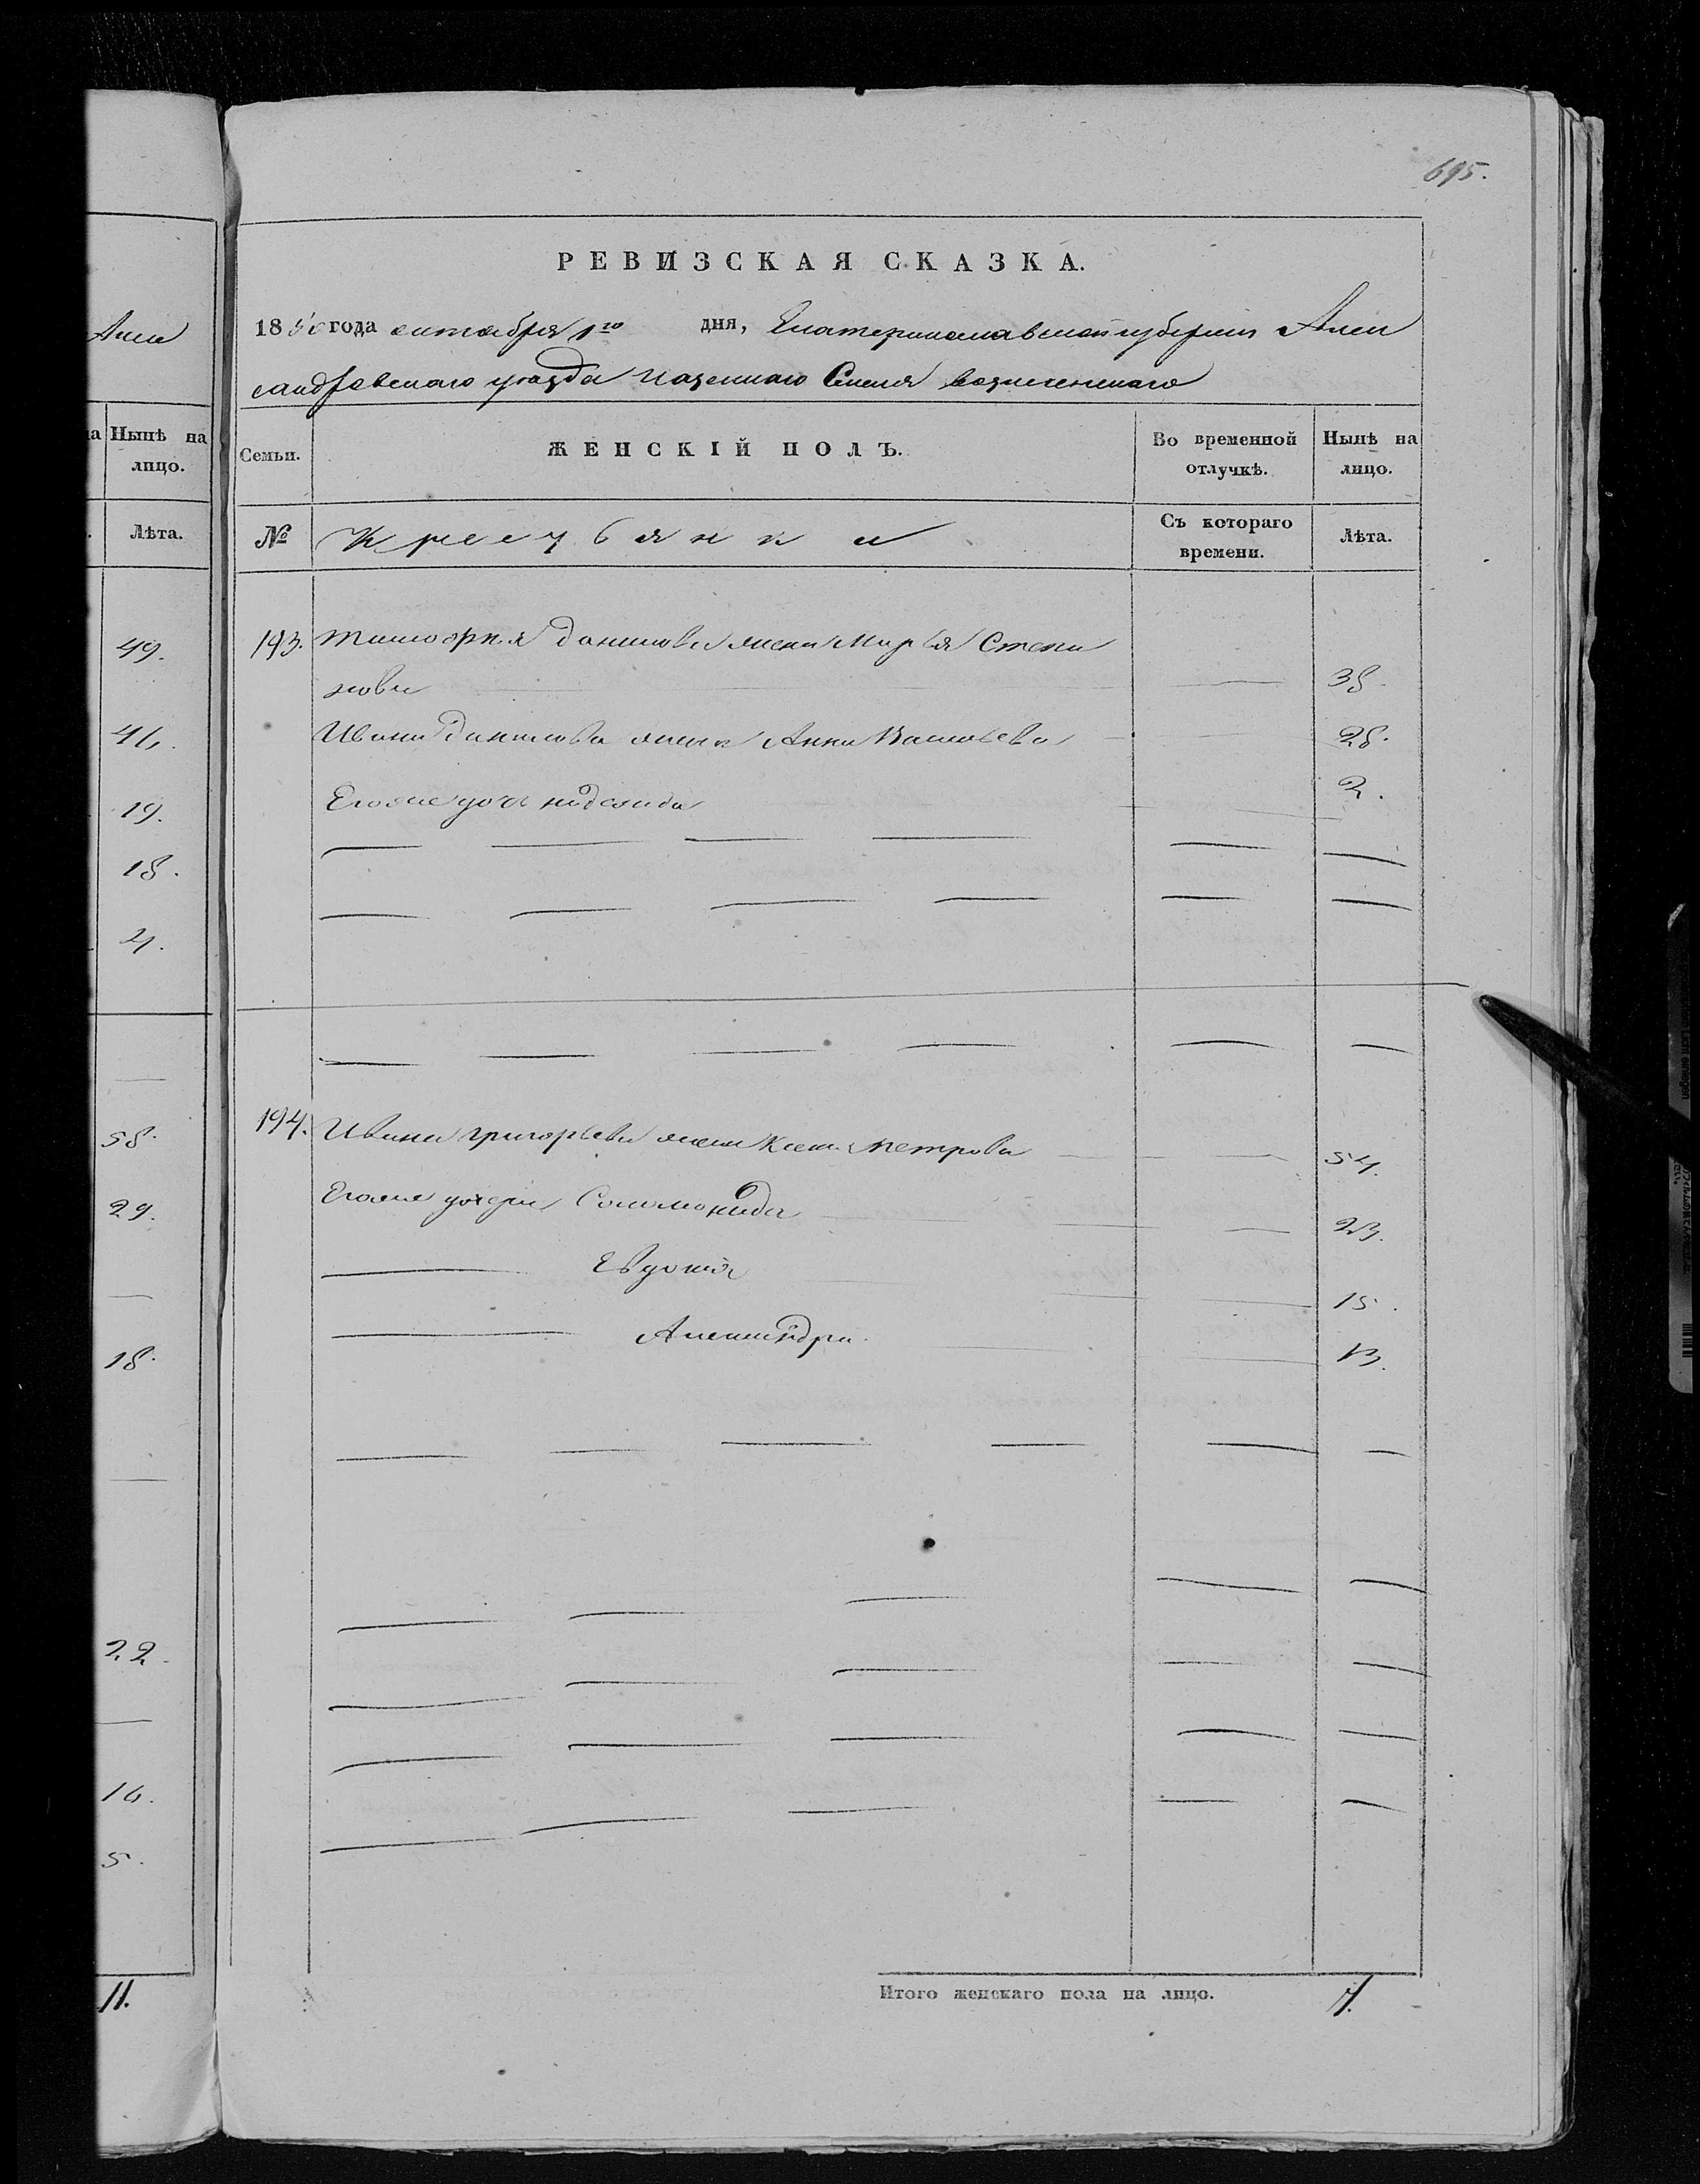 695.
РЕВИЗСКАЯ СКАЗКА.
1850 года октября 1го дня, Екатеринославской губернии Алек
сандровскаго уезда казеннаго Селенiя вознесенскаго
Семьи. ЖЕНСКІЙ ПОЛЪ. Во временной отлучкѣ. Нынѣ на лицо.
№ Крестьянки Съ котораго времени. Лѣта.
193. Тимофея данилова жена Марья Степа
нова 38.
Ивана данилова жена Анна Васильева 28.
Егоже дочь надежида 2.
194. Ивана григорьева жена Ксенія петрова 54.
Егоже дочери Соломонида 23.
Евдокія 15.
Александра 13.
Итого женскаго пола на лицо. 7.
Алек
Нынѣ на
лицо.
Лѣта.
49.
46.
19.
18.
4.
58.
29.
18.
22.
16.
5.
11.